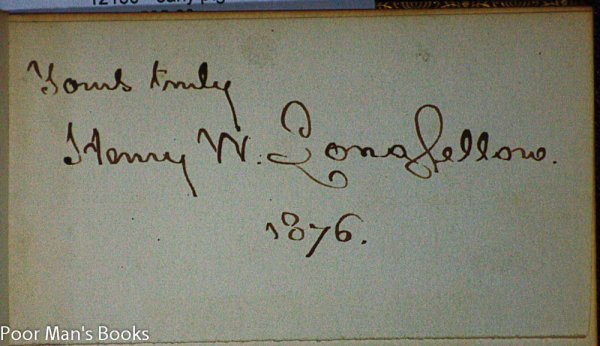 Yours truly
Henry W. Longfellow.
1876.
Poor Man's Books